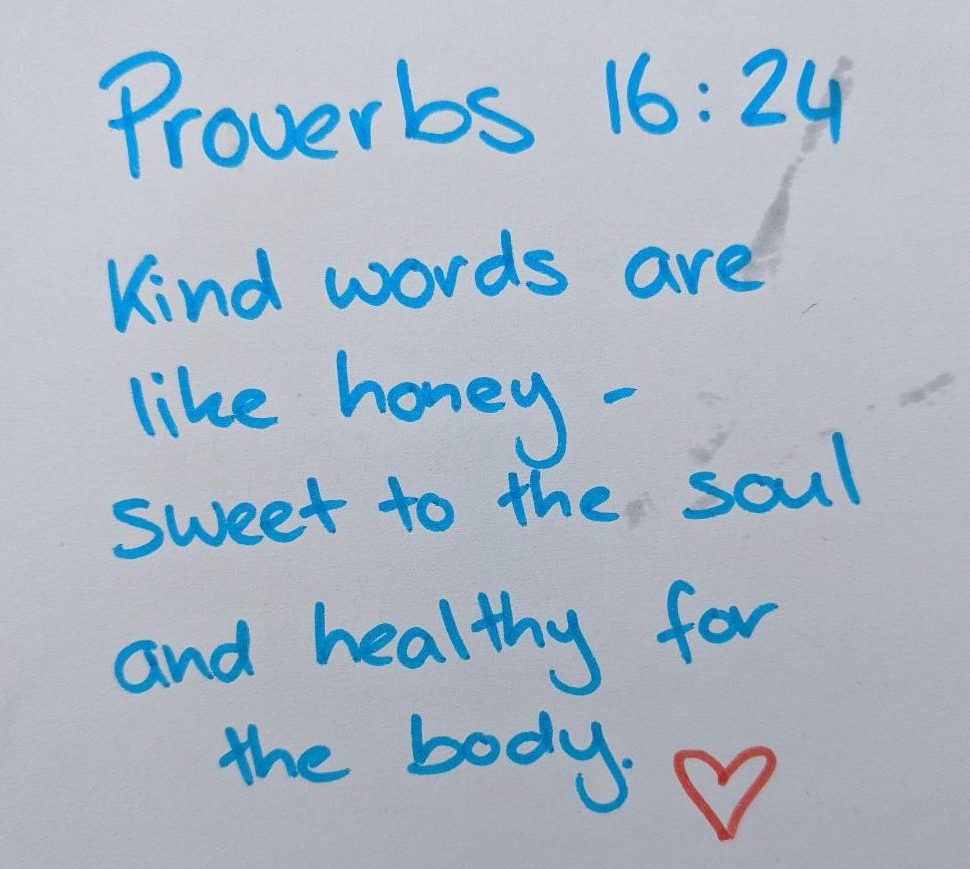 Proverbs 16:24
Kind words are
like honey -
sweet to the soul
and healthy for
the body.